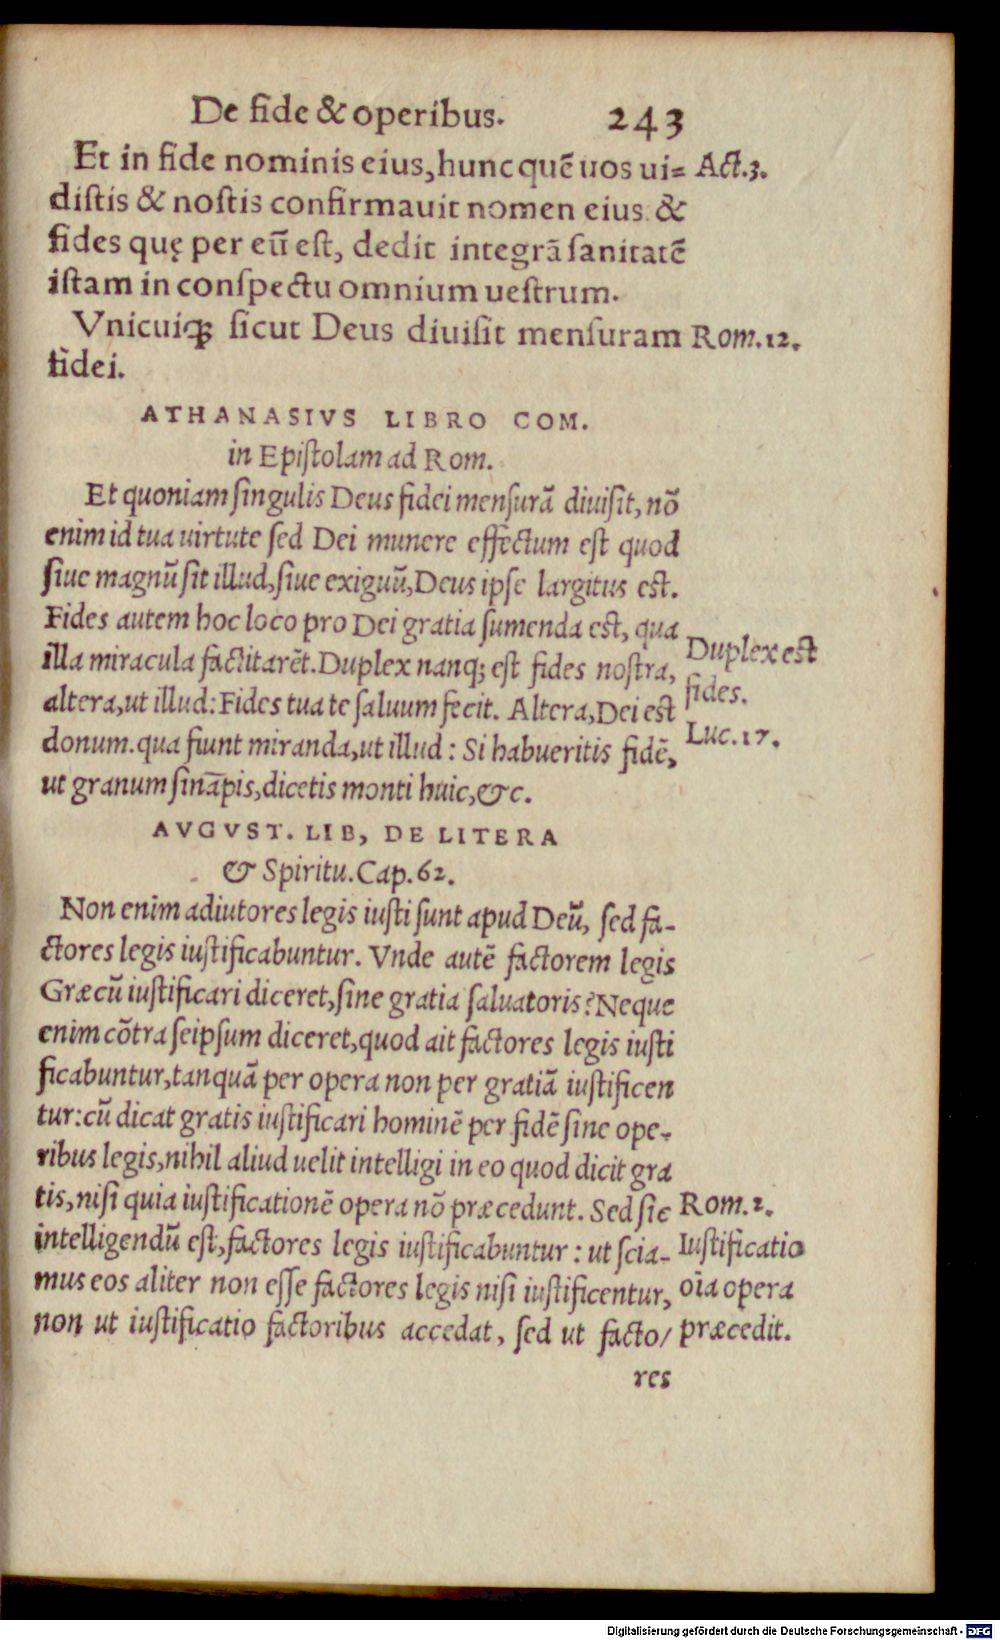 De fide & operibus. 243
Et in fide nominis eius, hunc quẽ uos ui= Act.3.
distis & nostis confirmauit nomen eius & 
fides quę per eũ est, dedit integrã sanitatẽ
istam in conspectu omnium uestrum.
Vnicuiq; sicut Deus diuisit mensuram Rom.12.
fidei.
ATHANASIVS LIBRO COM.
in Epistolam ad Rom.
Et quoniam singulis Deus fidei mensurã diuisit, nõ
enim id tua uirtute sed Dei munere effectum est quod
siue magnũ sit illud, siue exiguũ, Deus ipse largitus est.
Fides autem hoc loco pro Dei gratia sumenda est, qua
illa miracula factitarẽt. Duplex nanq; est fides nostra, Duplex est
altera, ut illud: Fides tua te saluum fecit. Altera, Dei est fides.
donum. qua fiunt miranda, ut illud: Si habueritis fidẽ, Luc.17.
ut granum sinãpis, dicetis monti huic, &c.
AVGVST. LIB, DE LITERA
& Spiritu. Cap. 62.
Non enim adiutores legis iusti sunt apud Deũ, sed fa-
ctores legis iustificabuntur. Vnde autẽ factorem legis
Græcũ iustificari diceret, sine gratia saluatoris? Neque
enim cõtra seipsum diceret, quod ait factores legis iusti
ficabuntur, tanquã per opera non per gratiã iustificen
tur: cũ dicat gratis iustificari hominẽ per fidẽ sine ope-
ribus legis, nihil aliud uelit intelligi in eo quod dicit gra
tis, nisi quia iustificationẽ opera nõ præcedunt. Sed sic Rom.2.
intelligendũ est, factores legis iustificabuntur: ut scia- Iustificatio
mus eos aliter non esse factores legis nisi iustificentur, oĩa opera
non ut iustificatio factoribus accedat, sed ut facto/ præcedit.
res
Digitalisierung gefördert durch die Deutsche Forschungsgemeinschaft - DFG